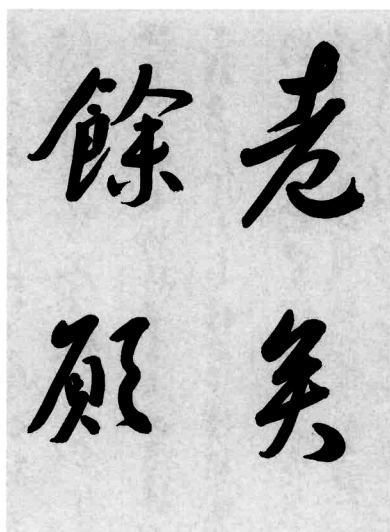 老矣
餘願